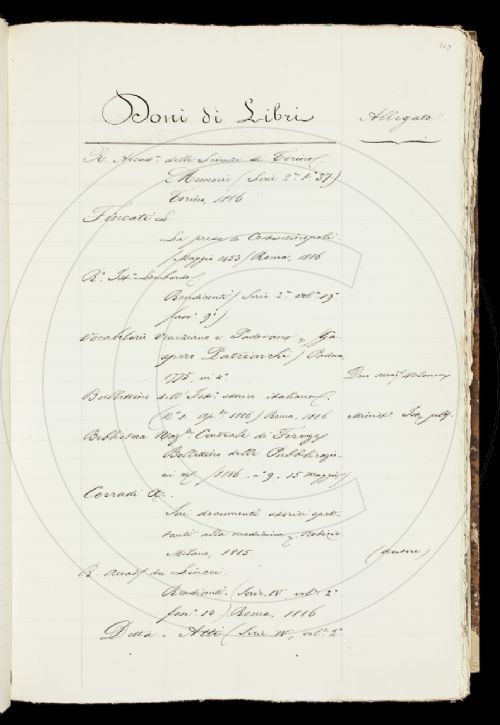 167
Doni di Libri Allegato
R. Accad. delle Scienze di Torino.
Memorie (Serie 2ª t. 37)
Torino, 1886
Fincati L.
La presa di Costantinopoli
(Maggio 1453) Roma, 1886
R. Ist. Lombardo
Rendiconti (Serie 2ª vol. 19
fasc. 9)
Vocabolario Veneziano e Padovano, Ga-
sparo Patriarchi) Padova
1775, in 4° Dono
Bullettino dell' Ist. storico italiano.
(N. 1. Ap. 1886) Roma, 1886 Minist. Ist. pubb.
Biblioteca Naz. Centrale di Firenze
Bollettino delle Pubblicazio-
ni (1886. n. 9. 15 maggio)
Corradi A.
Sei documenti storici spet-
tanti alla medicina, Notizie
Milano, 1885. (autore)
R. Accad. dei Lincei.
Rendiconti. (Serie IV. vol. 2°
fasc. 10) Roma, 1886
Detta. Atti (Serie IV, vol. 2°